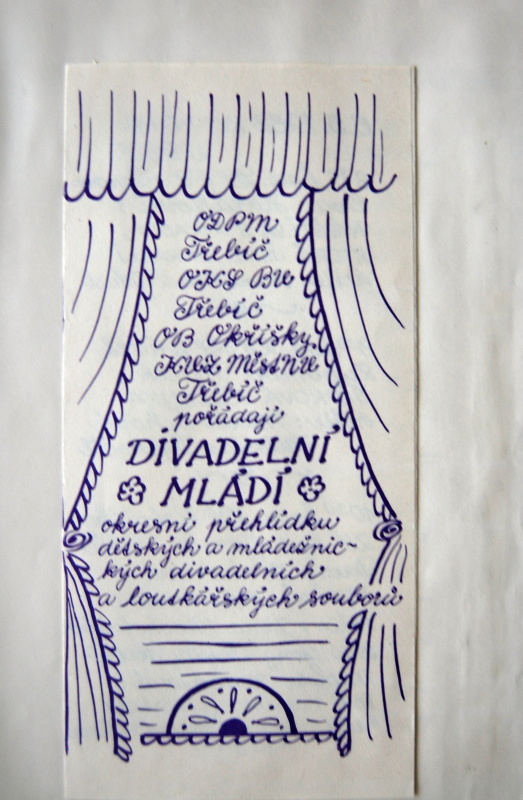 ODPM
Třebíč
OKS
Třebíč
OB Okříšky
Třebíč
pořádají
DIVADELNÍ
MLÁDÍ
okresní přehlídku
dětských a mládežnic-
kých divadelních
a loutkářských souborů